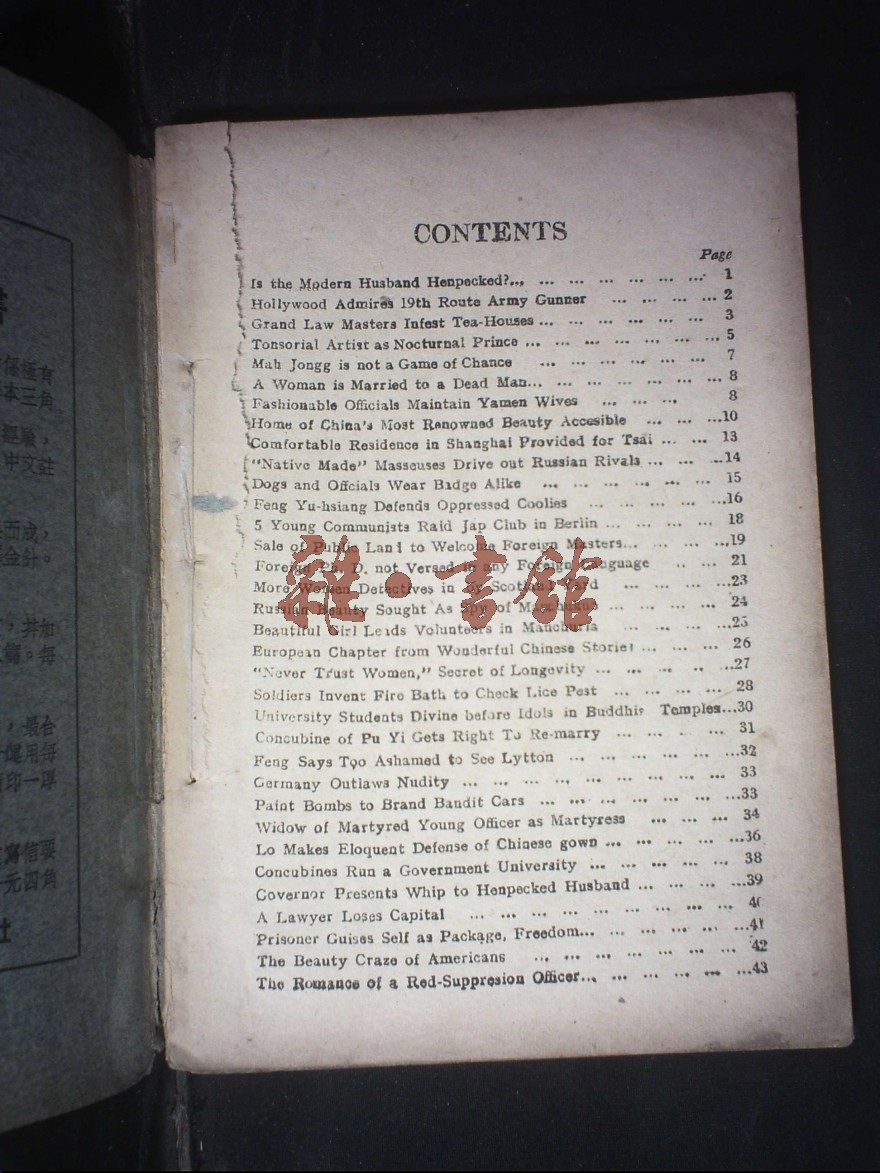 CONTENTS
Page
Is the Modern Husband Henpecked?... ... ... ... ... ... ... 1
Hollywood Admires 19th Route Army Gunner ... ... ... ... 2
Grand Law Masters Infest Tea-Houses ... ... ... ... ... ... 3
Tonsorial Artist as Nocturnal Prince ... ... ... ... ... ... ... 5
Mah Jongg is not a Game of Chance ... ... ... ... ... ... 7
A Woman is Married to a Dead Man... ... ... ... ... ... ... 8
Fashionable Officials Maintain Yamen Wives ... ... ... 8
Home of China's Most Renowned Beauty Accesible ... ... ...10
Comfortable Residence in Shanghai Provided for Tsai ... ... 13
"Native Made" Masseuses Drive out Russian Rivals ... ... ...14
Dogs and Offcials Wear Badge Alike ... ... ... ... ... 15
Feng Yu-hsiang Defends Oppressed Coolies ... ... ... ... ...16
5 Young Communists Raid Jap Club in Berlin ... ... ... ... 18
Sale of Public Land to Welcome Foreign Masters... ... ... ...19
Foreign Ph. D. not Versed in any Foreign Language ... ... 21
More Women Detectives in By Scotland Yard ... ... ... ...23
Russian Beauty Sought As Spy of Manchukuo ... ... ... 24
Beautiful Girl Leads Volunteers in Manchuria ... ... ... ...25
European Chapter from Wonderful Chinese Stories ... ... ... 26
"Never Trust Women," Secret of Longevity ... ... ... ... ...27
Soldiers Invent Fire Bath to Check Lice Pest ... ... ... ... 28
University Students Divine before Idols in Buddhis Temples...30
Concubine of Pu Yi Gets Right To Re-marry ... ... ... ... 31
Feng Says Too Ashamed to See Lytton ... ... ... ... ... ...32
Germany Outlaws Nudity ... ... ... ... ... ... ... ... ... 33
Paint Bombs to Brand Bandit Cars ... ... ... ... ... ... ...33
Widow of Martyred Young Officer as Martyress ... ... ... 34
Lo Makes Eloquent Defense of Chinese gown ... ... ... ... ...36
Concubines Run a Government University ... ... ... ... ... 38
Governor Presents Whip to Henpecked Husband ... ... ... ...39
A Lawyer Loses Capital ... ... ... ... ... ... ... ... ... 40
Prisoner Guises Self as Package, Freedom... ... ... ... ... ...41
The Beauty Craze of Americans ... ... ... ... ... ... ... ...42
The Romance of a Red-Suppresion Officer... ... ... ... ... ...43
雜·書館